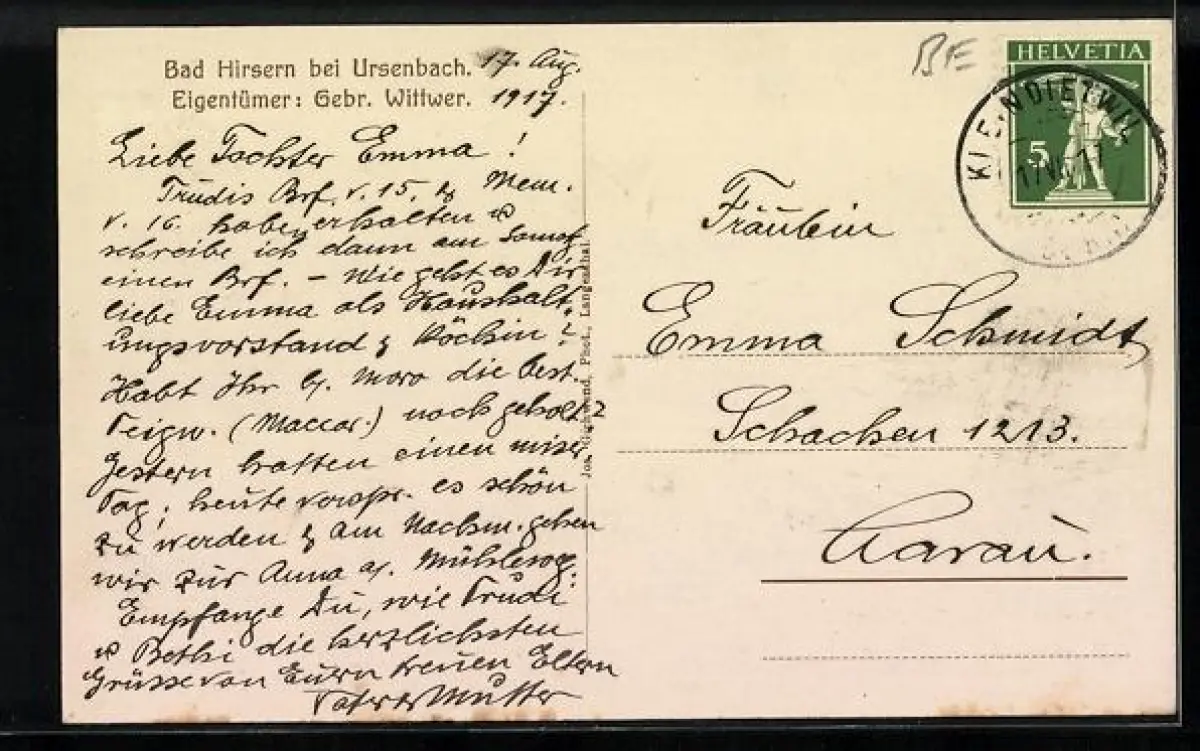 Bad Hirsern bei Ursenbach. 17. Aug.
Eigentümer: Gebr. Wittwer. 1917.
Liebe Tochter Emma!
Trudis Brf. v. 15. & Mem.
v. 16. habe erhalten u
schreibe ich dann am Samst.
einen Brf. – Wie geht es Dir
liebe Emma als Haushalt-
ungsvorstand & Köchin?
Habt Ihr b/. Moro die best.
Teigw. (Maccar.) noch geholt?
Gestern hatten einen miser.
Tag; heute verspr. es schön
zu werden & am Nachm. gehen
wir zur Anna a/.
Empfange Du, wie Trudi
u Bethi die herzlichsten
Grüsse von Euern treuen Eltern
Vater & Mutter
Phot., Langenthal.
BE
HELVETIA
5
KLEINDIETWIL
Fräulein
Emma Schmidt
Schachen 1213.
Aarau.